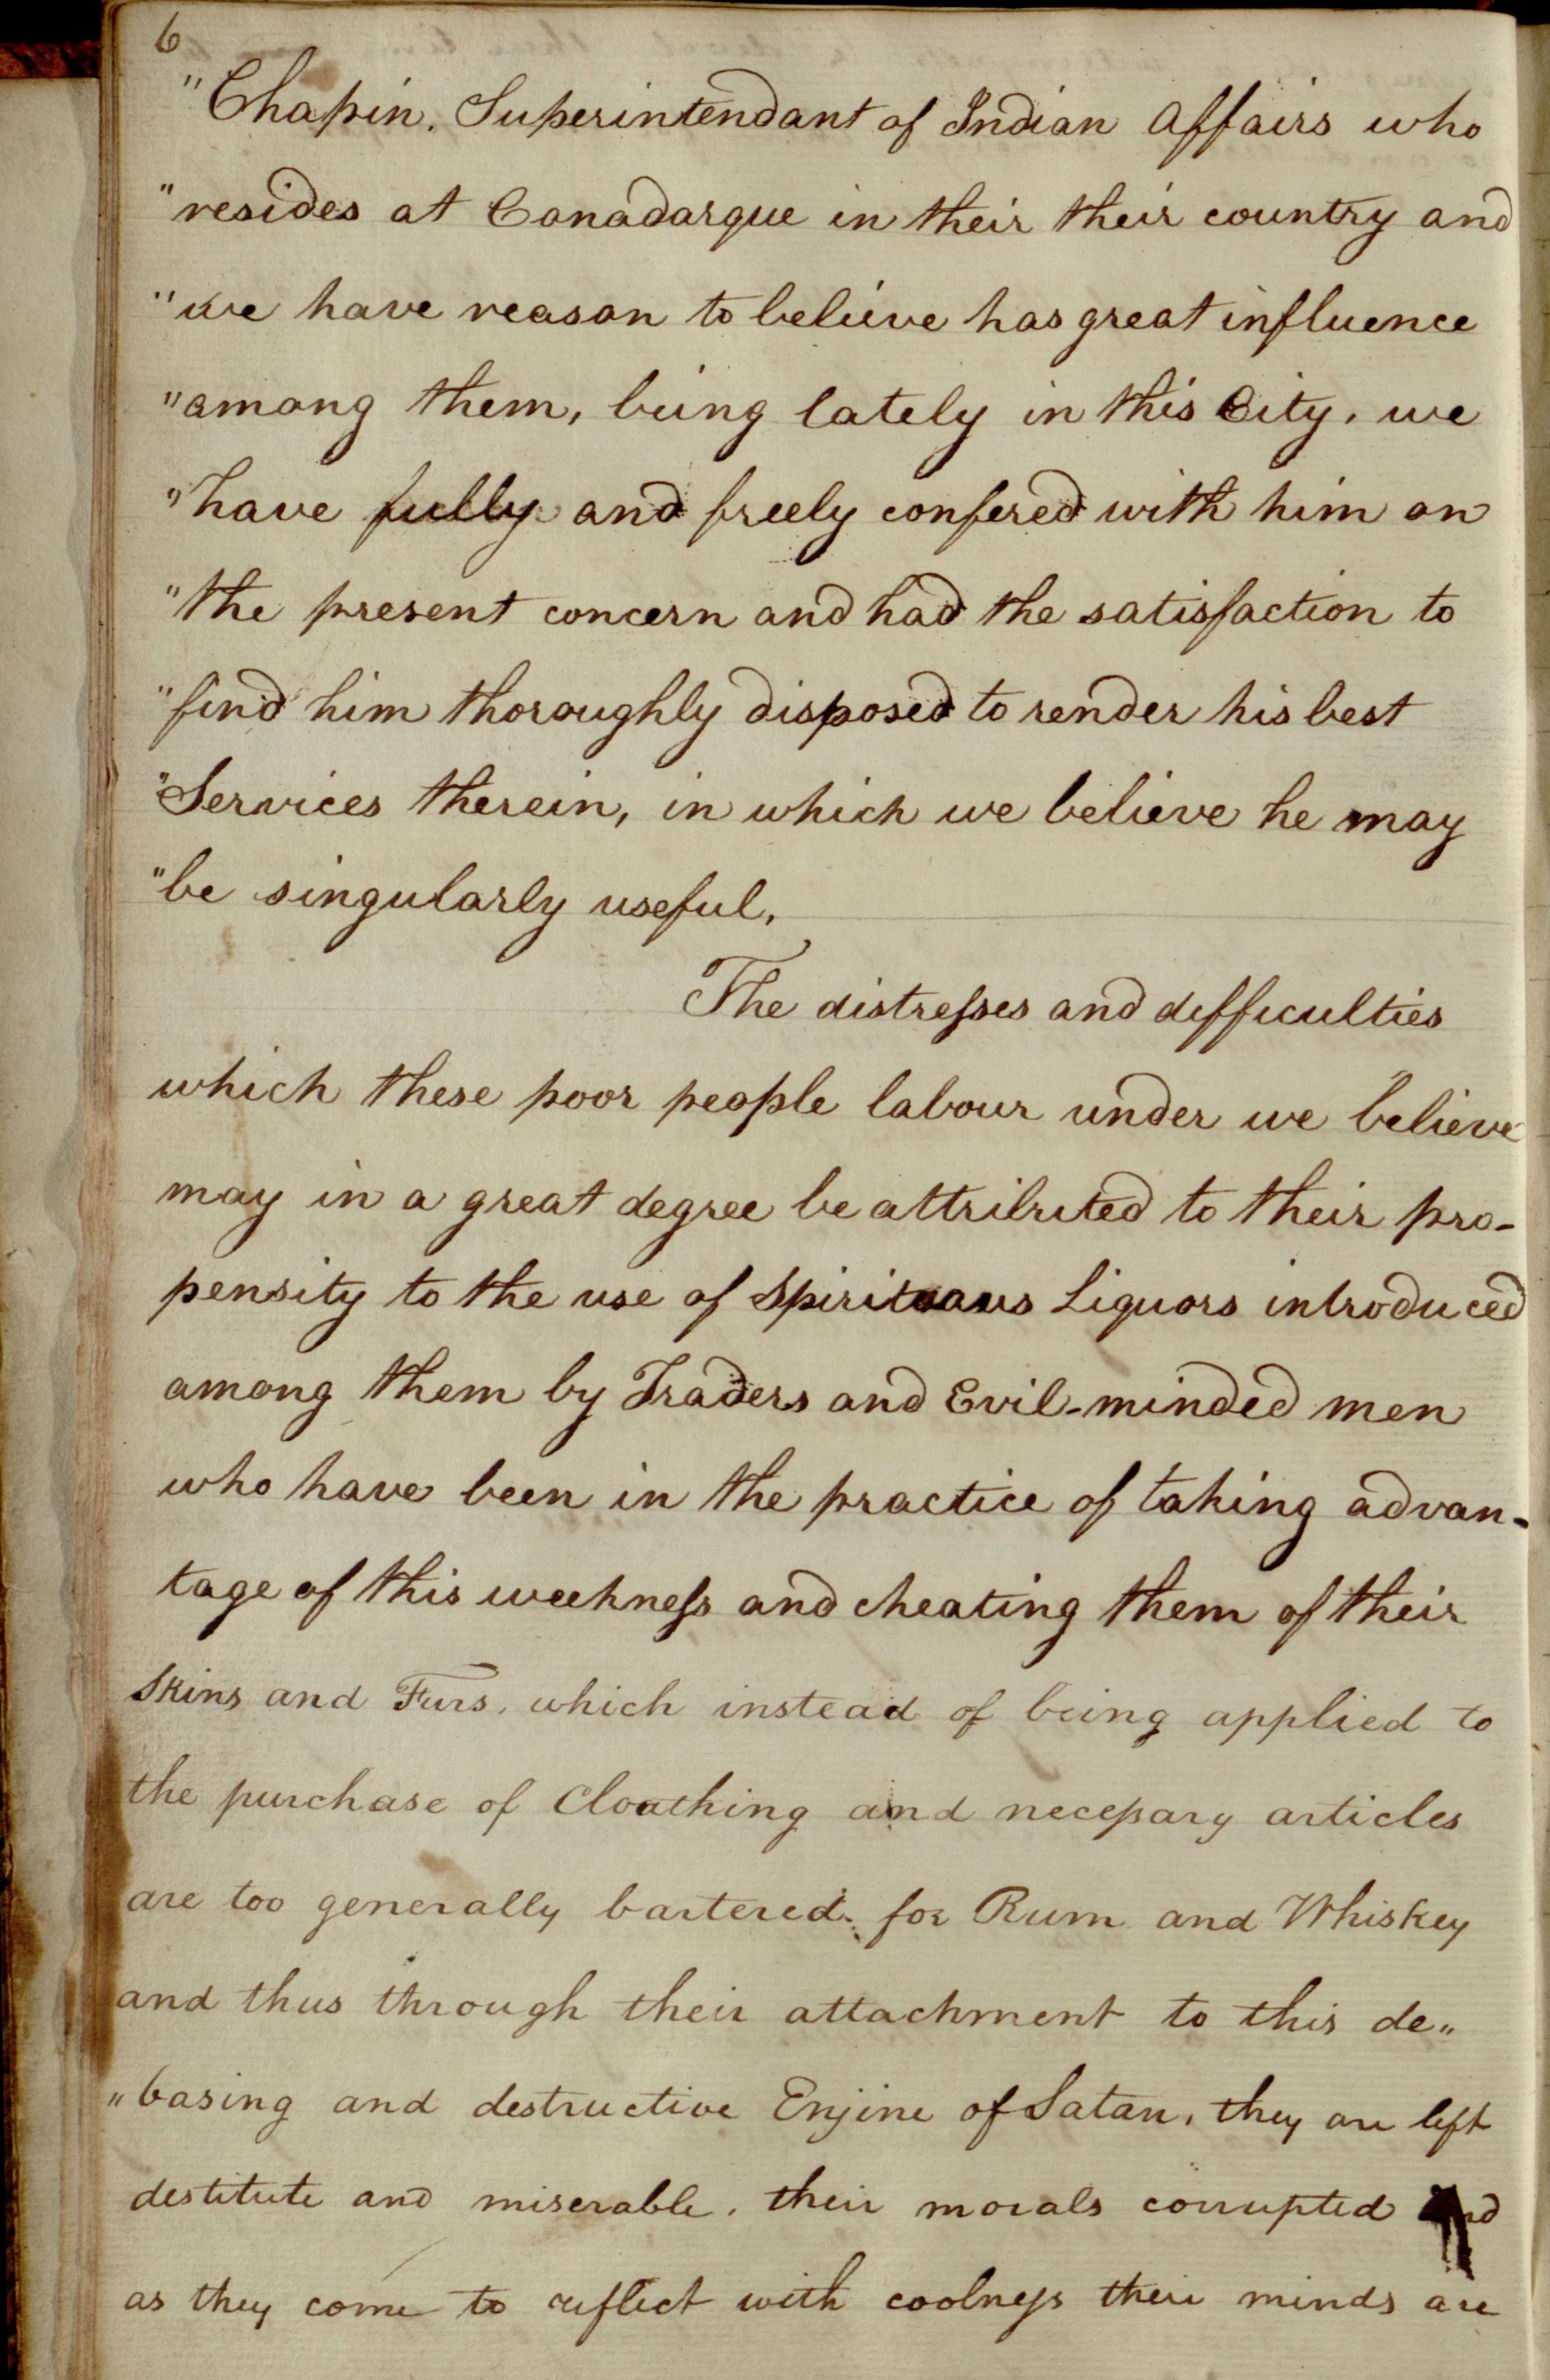 6
"Chapin. Superintendant of Indian Affairs who
"resides at Canadarque in their their country and
"we have reason to believe has great influence
"among them, being lately in this City, we
"have fully and freely confered with him on
"the present concern and had the satisfaction to
"find him thoroughly disposed to render his best
"Services therein, in which we believe he may
"be singularly useful,
The distreſses and difficulties
which these poor people labour under we believe
may in a great degree be attributed to their pro-
pensity to the use of Spirituous Liquors introduced
among them by Traders and Evil-minded men
who have been in the practice of taking advan-
tage of this weekneſs and cheating them of their
Skins and Furs, which instead of being applied to
the purchase of Cloathing and neceſsary articles
are too generally bartered for Rum and Whiskey
and thus through their attachment to this de„
„basing and destructive Enjine of Satan, they are left
destitute and miserable, their morals corrupted and
as they come to reflect with coolneſs their minds are